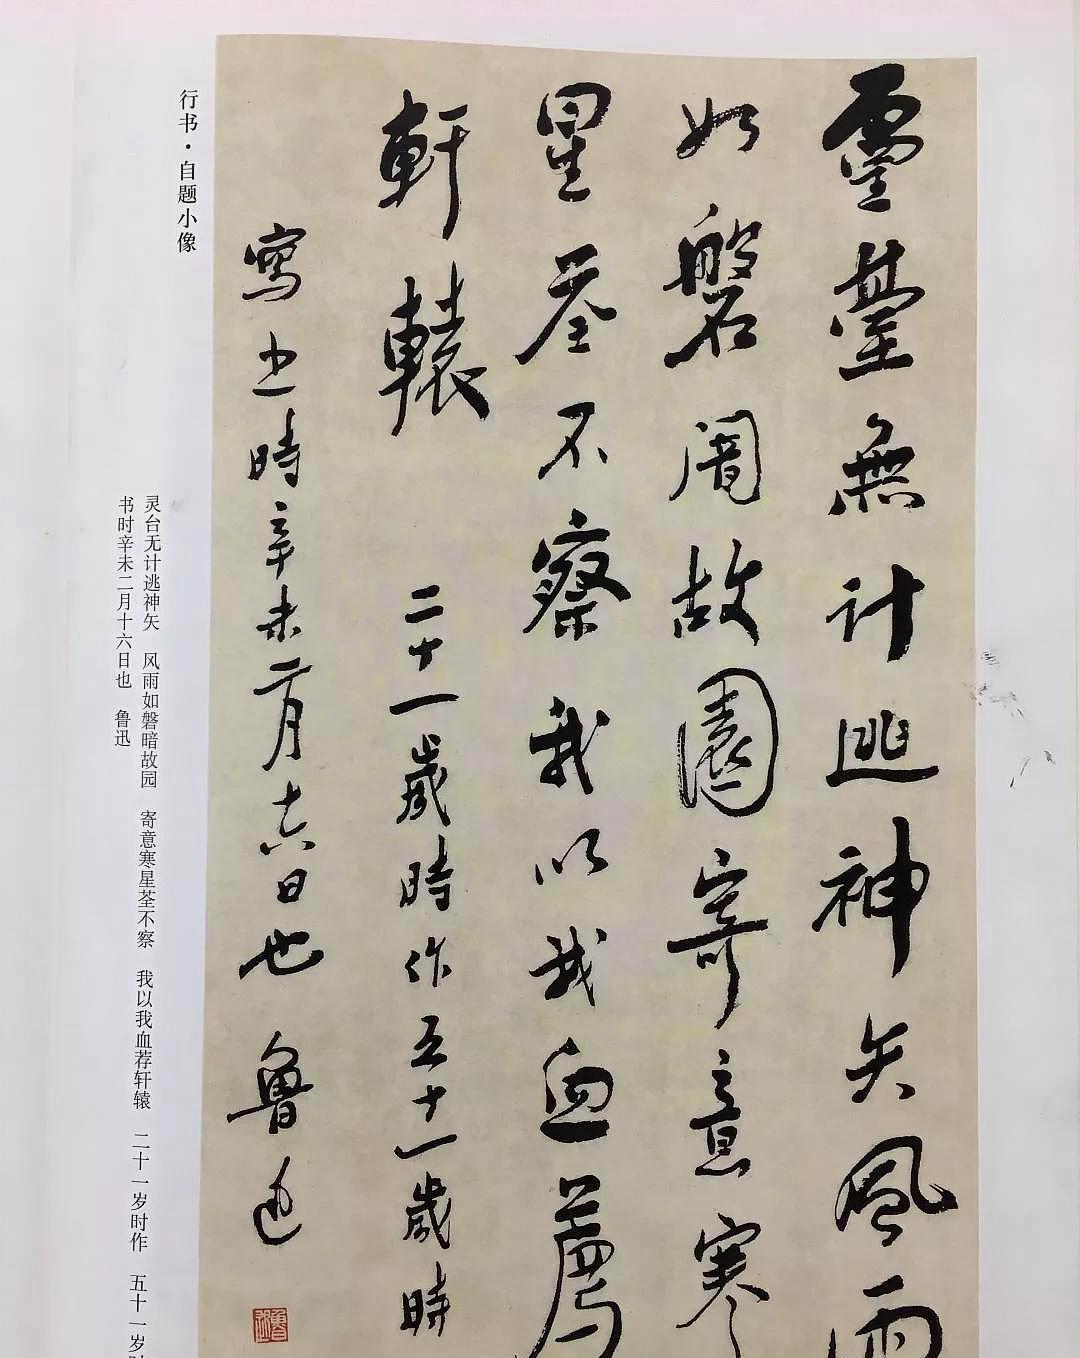 靈臺無計逃神矢風雨
如磐闇故園寄意寒
星荃不察我以我血薦
軒轅 二十一歲時作五十一歲時
寫之時辛未二月十六日也 魯迅
魯迅
行书·自题小像
灵台无计逃神矢 风雨如磐暗故园 寄意寒星荃不察 我以我血荐轩辕 二十一岁时作 五十一岁时
书时辛未二月十六日也 鲁迅